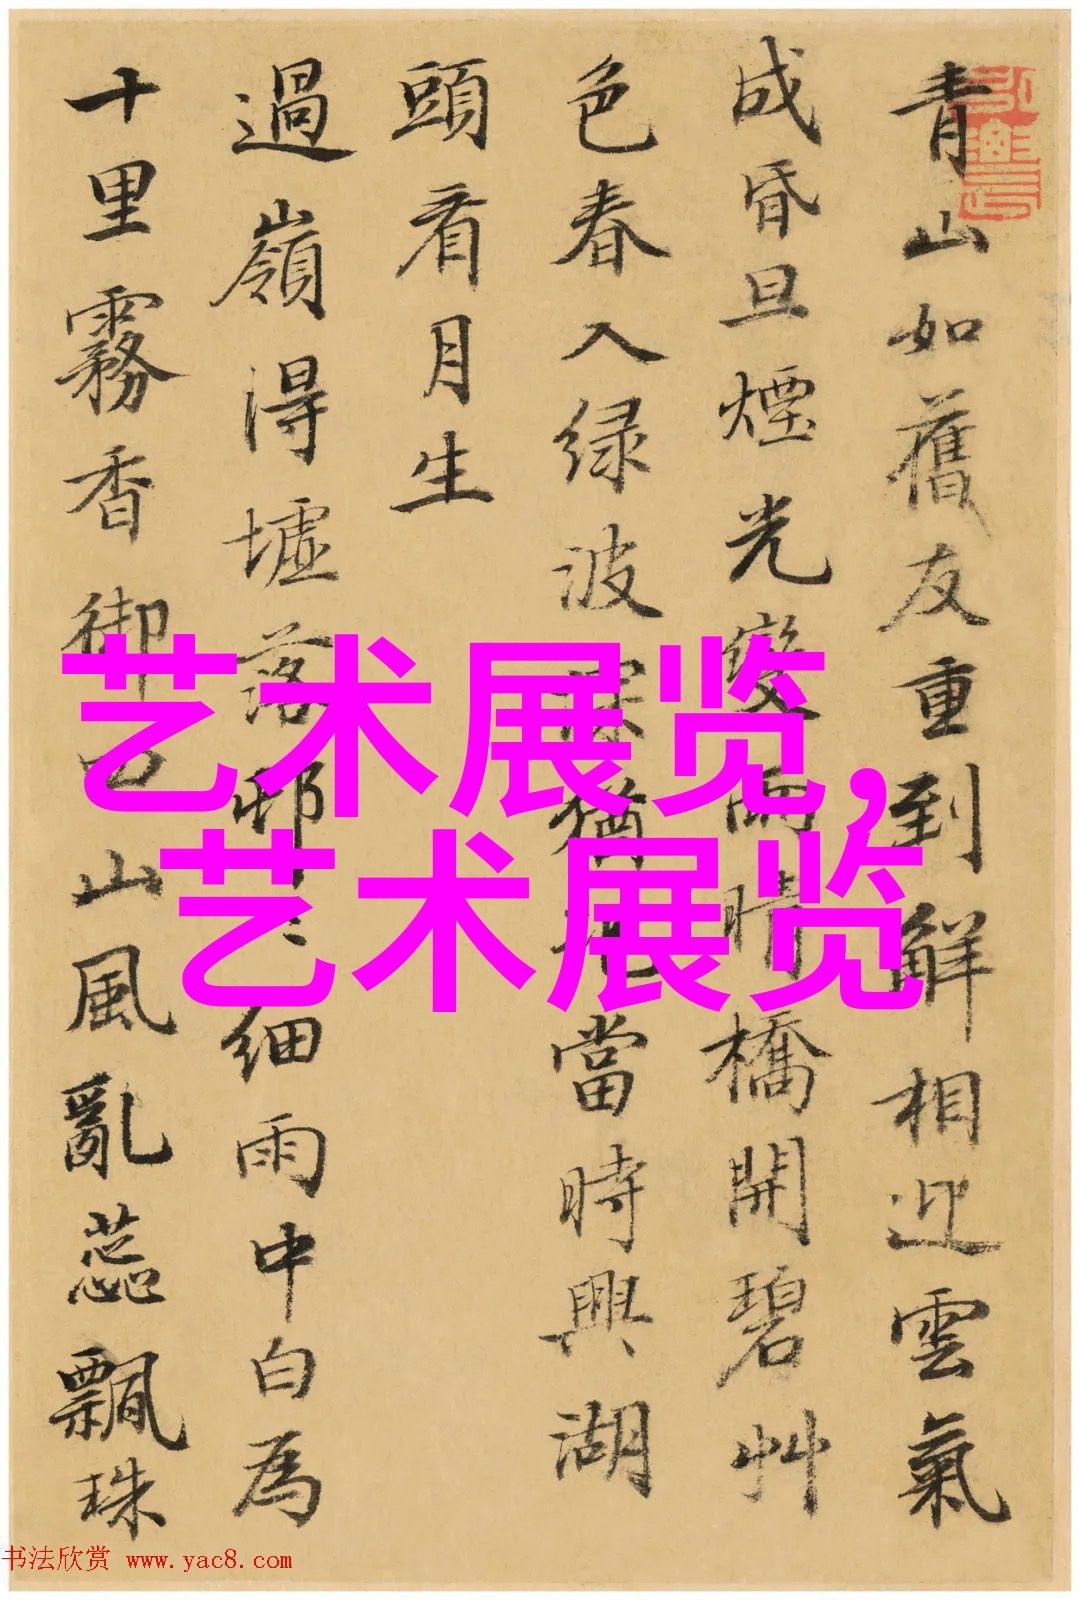 青山如舊友重到解相迎雲氣
成昏旦煙光變雨晴橋開碧艸
色春入绿波猶當時興湖
頭看月生
過嶺得墟落邨〻細雨中白為
十里霧香御四山風亂蕊飄珠
艺术展览,
艺术展览
书法欣赏 www.yac8.com